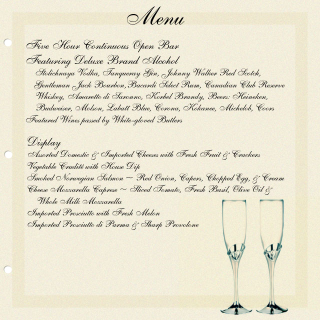 Menu
Five Hour Continuous Open Bar
Featuring Deluxe Brand Alcohol
Stolichnaya Vodka, Tanqueray Gin, Johnny Walker Red Scotch,
Gentleman Jack Bourbon, Bacardi Select Rum, Canadian Club Reserve
Whiskey, Amaretto di Sarono, Korbel Brandy, Beers: Heineken,
Budweiser, Molson, Labatt Blue, Corona, Kokanee, Michelob, Coors
Featured Wines passed by White-gloved Butlers
Display
Assorted Domestic & Imported Cheese with Fresh Fruit & Crackers
Vegetable Crudité with House Dip
Smoked Norwegian Salmon ~ Red Onion, Capers, Chopped Egg, & Cream
Cheese Mozzarella Caprese ~ Sliced Tomato, Fresh Basil, Olive Oil &
Whole Milk Mozzarella
Imported Prosciutto with Fresh Melon
Imported Prosciutto di Parma & Sharp Provolone